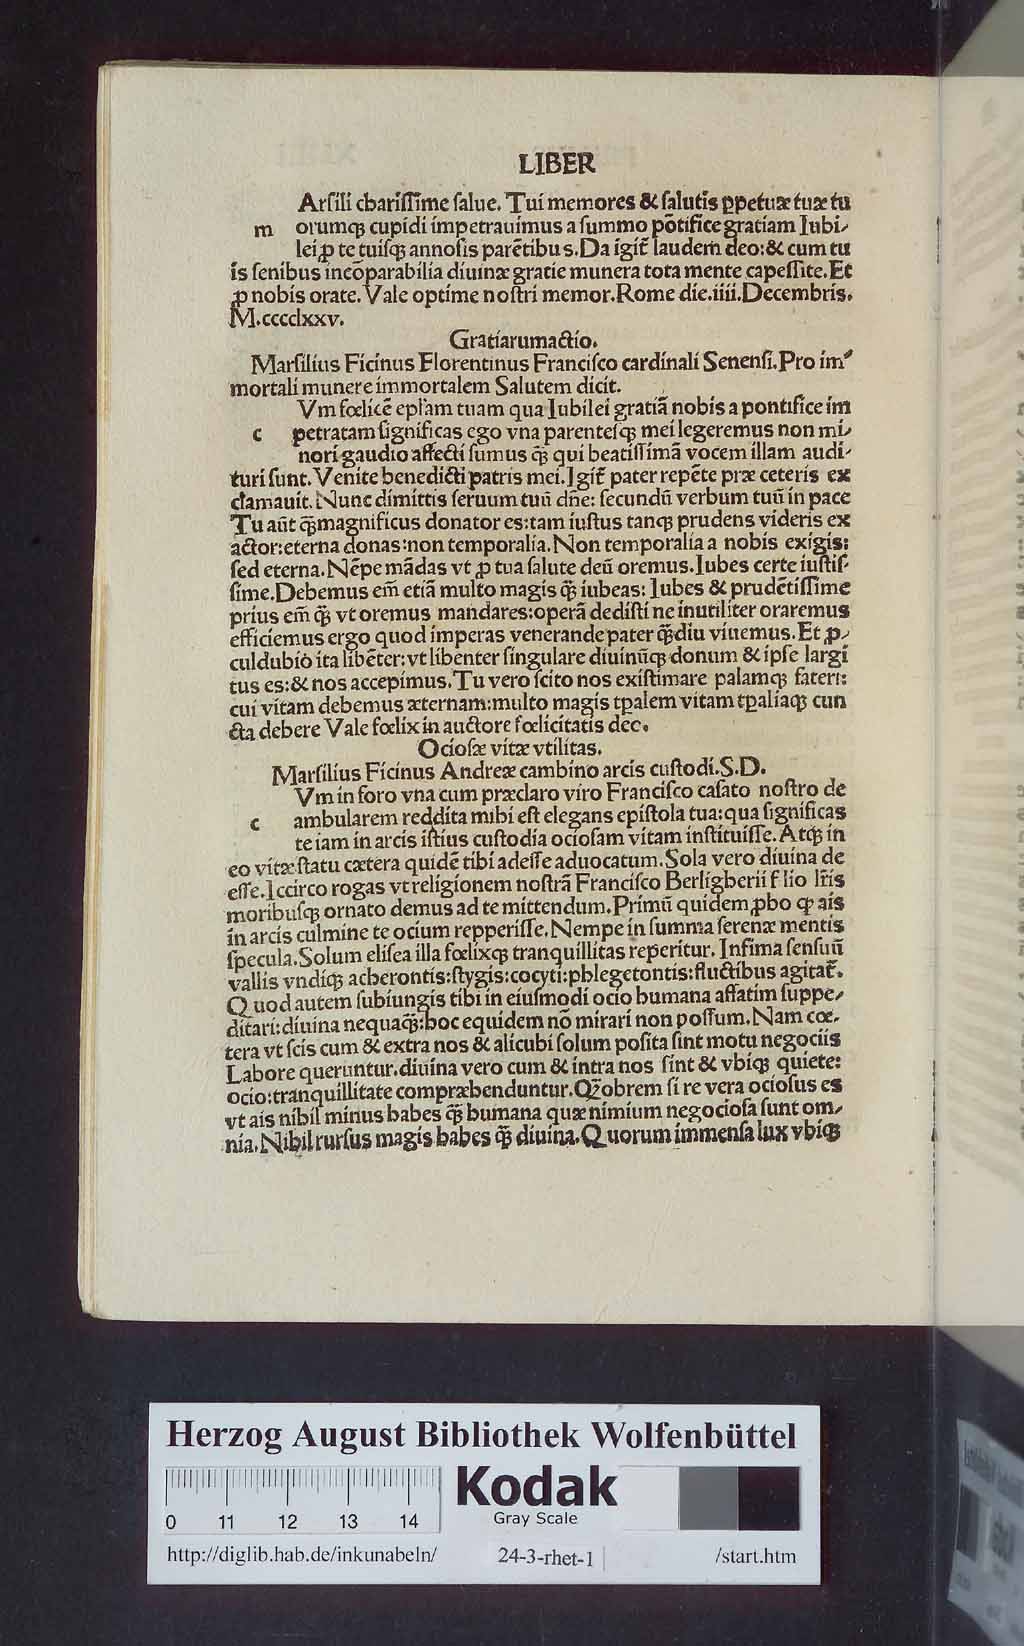 LIBER
Arſili chariſſime ſalue. Tui memores & ſalutis ꝑpetuæ tuæ tu
m orumqꝫ cupidi impetrauimus a ſummo põtifice gratiam Iubi/
lei ꝓ te tuiſqꝫ annoſis parẽtibus. Da igit̃ laudem deo:& cum tu
is ſenibus incõparabilia diuinæ gratie munera tota mente capeſſite. Et
ꝓ nobis orate. Vale optime noſtri memor. Rome die.iiii. Decembris.
M.cccclxxv.
Gratiarumactio.
Marſilius Ficinus Florentinus Franciſco cardinali Senenſi. Pro im/
mortali munere immortalem Salutem dicit.
Vm fœlicẽ epl'am tuam qua Iubilei gratiã nobis a pontifice im
c petratam ſignificas ego vna parenteſqꝫ mei legeremus non mi/
nori gaudio affecti ſumus q̃ꝫ qui beatiſſimã vocem illam audi/
turi ſunt. Venite benedicti patris mei. Igit̃ pater repẽte præ ceteris ex
clamauit. Nunc dimittis ſeruum tuũ dñe: ſecundũ verbum tuũ in pace
Tu aũt q̃ꝫ magnificus donator es:tam iuſtus tanqꝫ prudens videris ex
actor:eterna donas:non temporalia. Non temporalia a nobis exigis:
ſed eterna. Nẽpe mãdas vt ꝓ tua ſalute deũ oremus. Iubes certe iuſtiſ-
ſime. Debemus em̃ etiã multo magis q̃ꝫ iubeas: Iubes & prudẽtiſſime
prius em̃ q̃ꝫ vt oremus mandares:operã dediſti ne inutiliter oraremus
efficiemus ergo quod imperas venerande pater q̃ꝫdiu viuemus. Et ꝓ/
culdubio ita libẽter:vt libenter ſingulare diuinũqꝫ donum & ipſe largi
tus es:& nos accepimus. Tu vero ſcito nos exiſtimare palamqꝫ fateri:
cui vitam debemus æternam:multo magis tꝑalem vitam tꝑaliaqꝫ cun
cta debere Vale fœlix in auctore fœlicitatis dec.
Ocioſæ vitæ vtilitas.
Marſilius Ficinus Andreæ cambino arcis cuſtodi.S.D.
Vm in foro vna cum præclaro viro Franciſco caſato noſtro de
c ambularem reddita mihi eſt elegans epiſtola tua:qua ſignificas
te iam in arcis iſtius cuſtodia ocioſam vitam inſtituiſſe. Atqꝫ in
eo vitæ ſtatu cætera quidẽ tibi adeſſe aduocatum. Sola vero diuina de
eſſe. Iccirco rogas vt religionem noſtrã Franciſco Berligherii f lio lr̃is
moribuſqꝫ ornato demus ad te mittendum. Primũ quidem ꝓbo ꝙ ais
in arcis culmine te ocium repperiſſe. Nempe in ſumma ſerenæ mentis
ſpecula. Solum eliſea illa fœlixqꝫ tranquillitas reperitur. Infima ſenſuũ
vallis vndiqꝫ acherontis:ſtygis:cocyti:phlegetontis:fluctibus agitat̃.
Quod autem ſubiungis tibi in eiuſmodi ocio humana affatim ſuppe/
ditari:diuina nequaq̃ꝫ:hoc equidem nõ mirari non poſſum. Nam cœ/
tera vt ſcis cum & extra nos & alicubi ſolum poſita ſint motu negociis
Labore queruntur. diuina vero cum & intra nos ſint & vbiqꝫ quiete:
ocio:tranquillitate compræhenduntur. Qꝫobrem ſi re vera ocioſus es
vt ais nihil minus habes q̃ꝫ humana quæ nimium negocioſa ſunt om/
nia. Nihil rurſus magis habes q̃ꝫ diuina. Quorum immenſa lux vbiqꝫ
Herzog August Bibliothek Wolfenbüttel
Kodak
Gray Scale
0 11 12 13 14
http://diglib.hab.de/inkunabeln/ 24-3-rhet-1 /start.htm